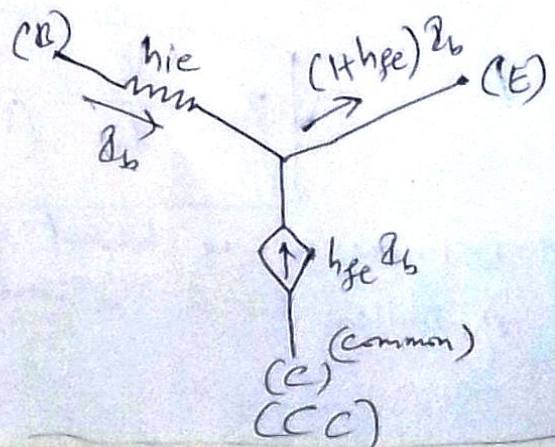 (B)
hie
(1+hfe) Ib
(E)
Ib
hfe Ib
(common)
(C)
(CC)